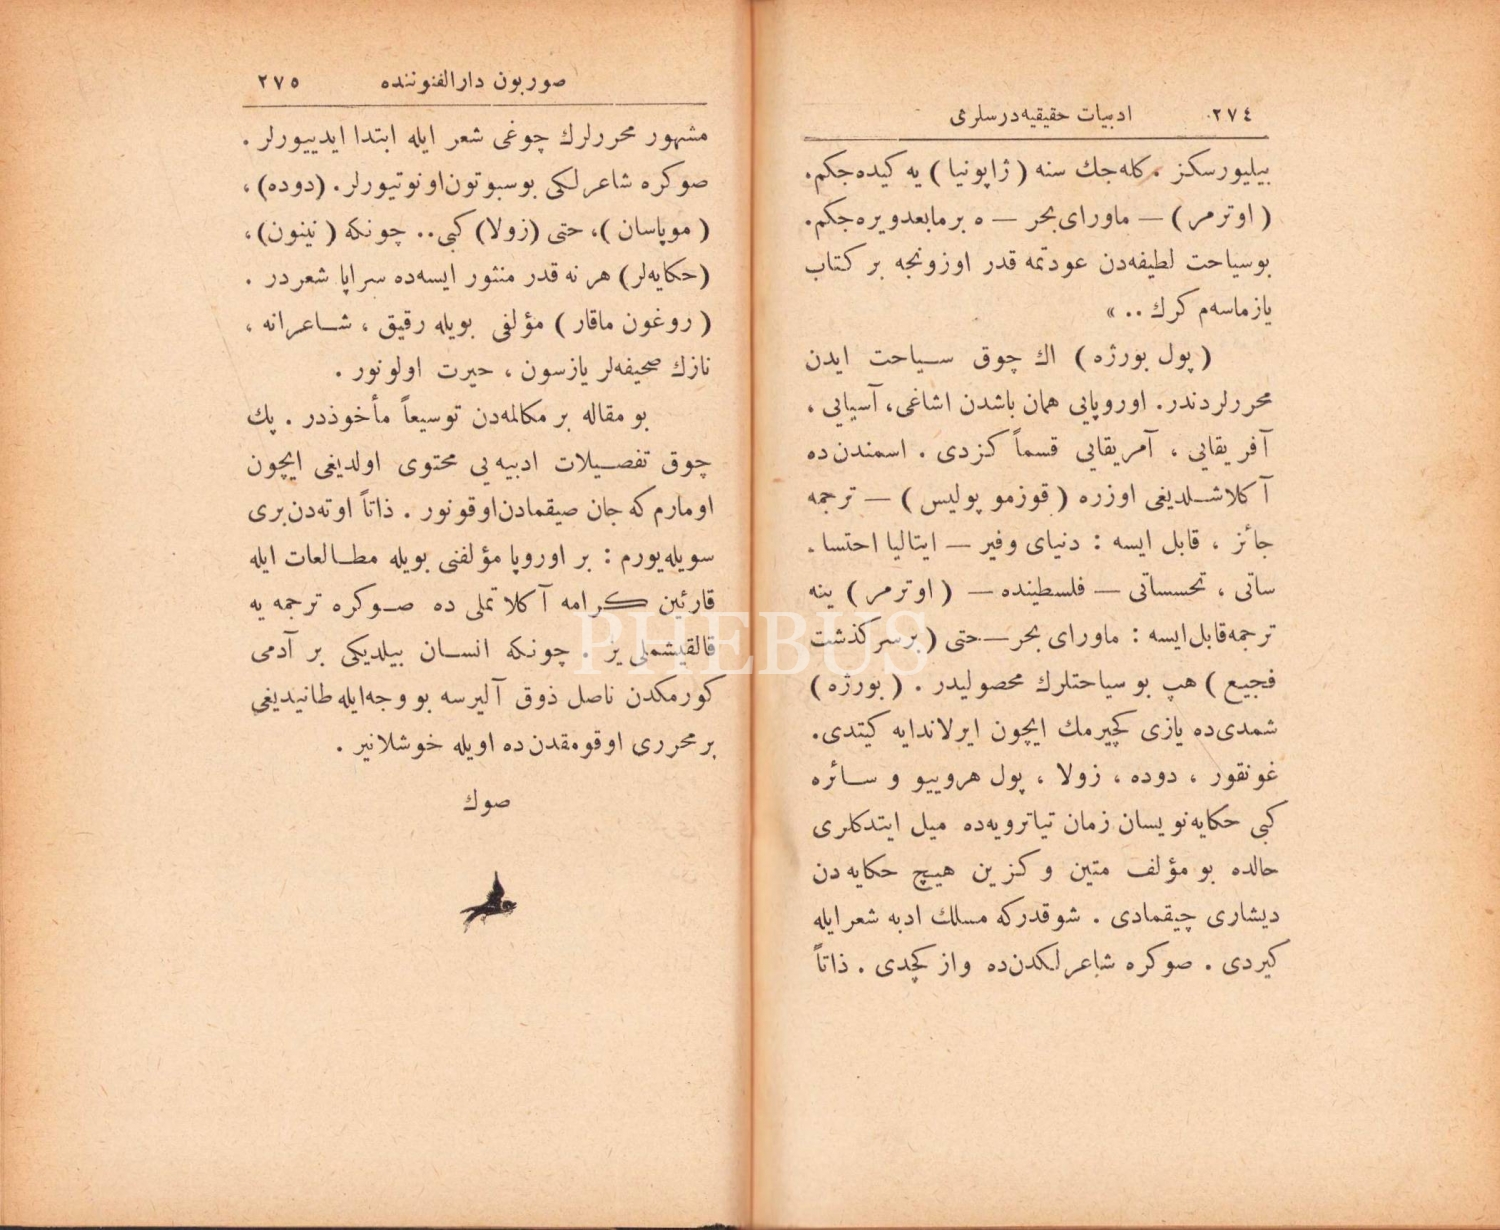 ٢٧٤ ادبيات حقيقيه درسلرى
بيليورسكز . كله‌جك سنه ( ژاپونيا ) يه كيده‌جكم.
( اوترمر ) — ماوراى بحر — ه برمابعدويره‌جكم.
بوسياحت لطيفه‌دن عودتمه قدر اوزونجه بر كتاب
يازماسه‌م كرك .. »
( پول بورژه ) اك چوق سياحت ايدن
محررلردندر. اوروپايى همان باشدن اشاغى، آسيايى ،
آفريقايى ، آمريقايى قسماً كزدى . اسمندن ده
آكلاشلديغى اوزره ( قوزموپوليس ) — ترجمه
جائز ، قابل ايسه : دنياى وفير — ايتاليا احتسا-
ساتى ، تحسساتى — فلسطينده — ( اوترمر ) ينه
ترجمه‌قابل‌ايسه : ماوراى بحر — حتى ( برسركذشت
فجيع ) هپ بو سياحتلرك محصوليدر . ( بورژه )
شمدى‌ده يازى كچيرمك ايچون ايرلاندايه كيتدى.
غونقور ، دوده ، زولا ، پول هروييو و سائره
كبى حكايه‌نويسان زمان تياترويه‌ده ميل ايتدكلرى
حالده بو مؤلف متين و كزين هيچ حكايه دن
ديشارى چيقمادى . شوقدركه مسلك ادبه شعرايله
كيردى . صوكره شاعرلكدن‌ده واز كچدى . ذاتاً
صوربون دارالفنوننده ٢٧٥
مشهور محررلرك چوغى شعر ايله ابتدا ايدييورلر .
صوكره شاعرلكى بوسبوتون‌اونوتيورلر. (دوده) ،
( موپاسان )، حتى (زولا) كبى.. چونكه ( نينون) ،
(حكايه‌لر) هر نه قدر منثور ايسه‌ده سراپا شعردر .
( روغون ماقار ) مؤلفى بويله رقيق ، شاعرانه ،
نازك صحيفه‌لر يازسون ، حيرت اولونور .
بو مقاله بر مكالمه‌دن توسيعاً مأخوذدر . پك
چوق تفصيلات ادبيه‌يى محتوى اولديغى ايچون
اومارم كه جان صيقمادن‌اوقونور . ذاتاً اوته‌دن‌برى
سويله‌يورم : بر اوروپا مؤلفنى بويله مطالعات ايله
قارئين كرامه آكلاتملى ده صوكره ترجمه يه
قالقيشملى يز . چونكه انسان بيلديكى بر آدمى
كورمكدن ناصل ذوق آليرسه بو وجه‌ايله طانيديغى
بر محررى اوقومقدن ده اويله خوشلانير .
صوك
PHEBUS